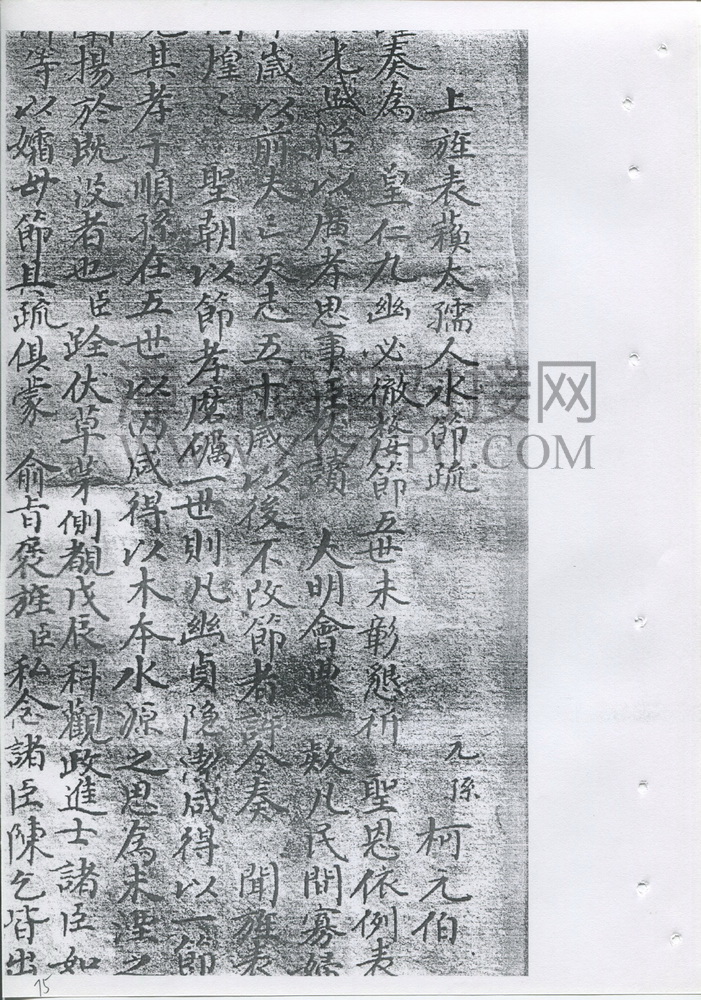 上旌表蘋太孺人水節疏
元孫 柯元伯
奏為 皇仁九幽必徹發節五世未彰懇祈 聖恩依例表
光盛治以廣孝思事臣伏讀 大明會典一款凡民間寡婦
歲以前夫亡矢志五十歲以後不改節者許令奏 聞旌表
煌〻 聖朝以節孝磨礪一世則凡幽貞隱潔咸得以一節
其孝子順孫在五世以內咸得以木本水源之思為未湮之
揚於既沒者也臣跧伏草茅側覩戊辰科觀政進士諸臣如
等以孀母節具疏俱蒙 俞旨褒旌臣私念諸臣陳乞皆出
15